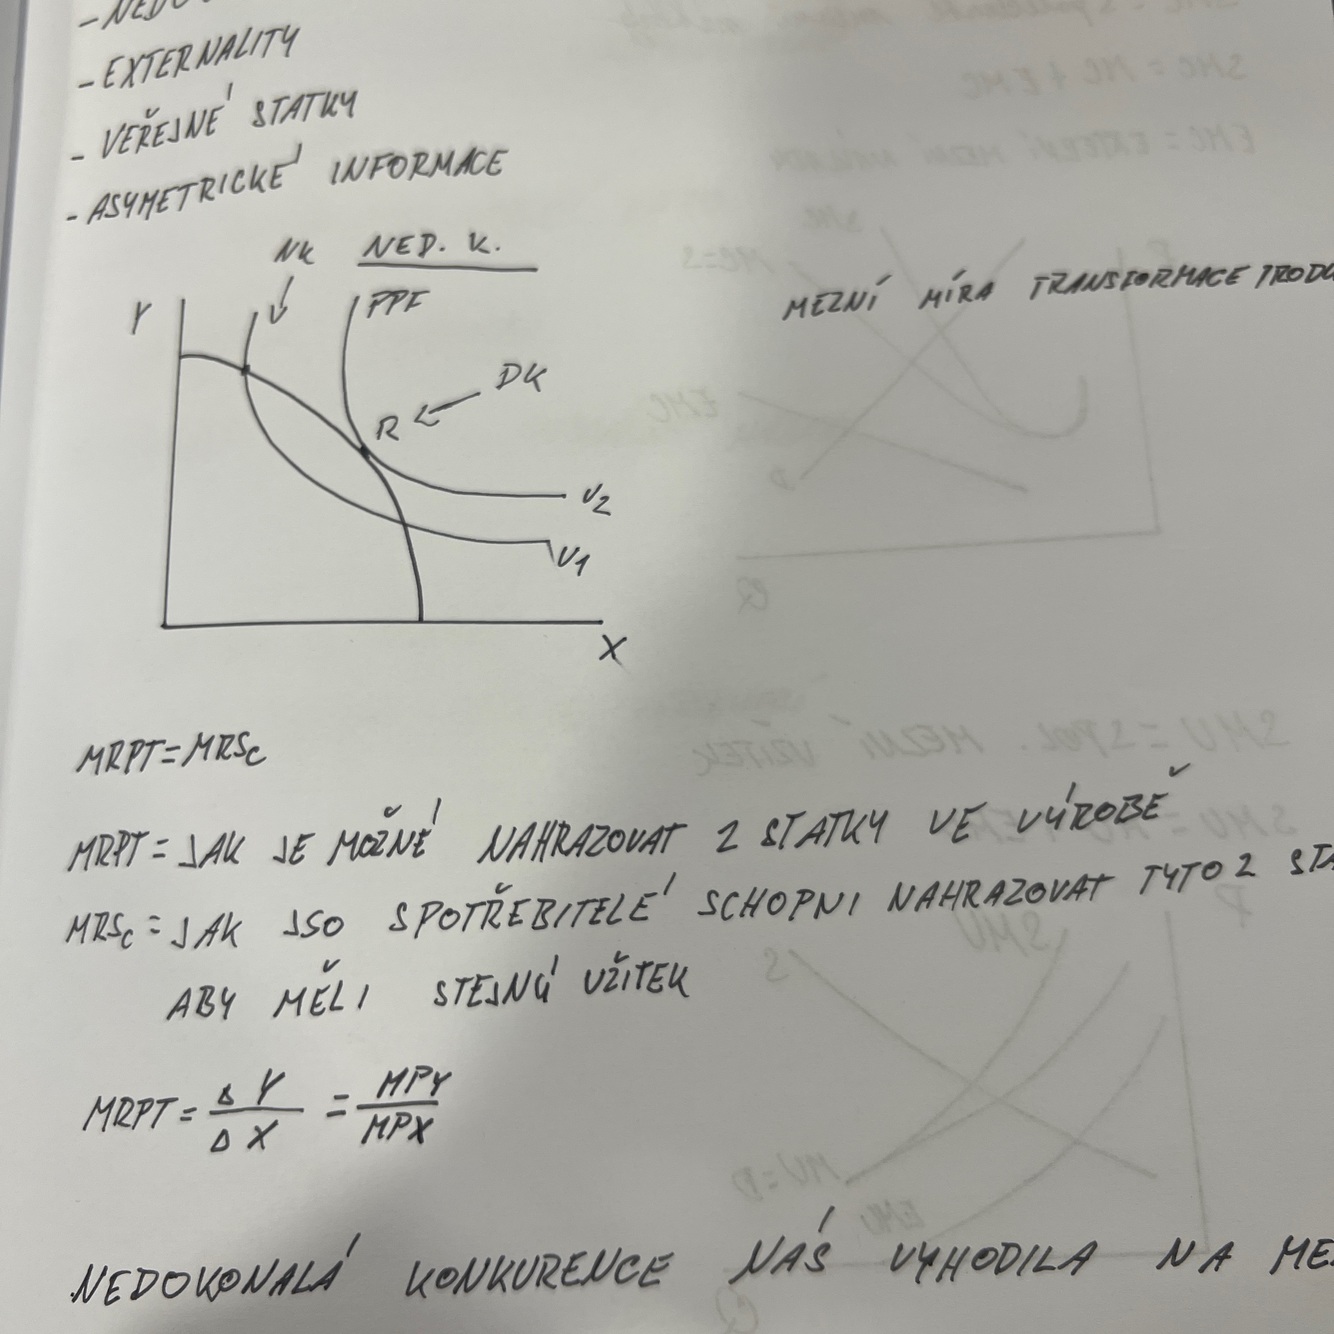 - EXTERNALITY
- VEŘEJNÉ STATKY
- ASYMETRICKÉ INFORMACE
NK NED. K.
Y PPF
DK
R
U2
U1
X
MEZNÍ MÍRA TRANSFORMACE
MRPT=MRSC
MRPT= JAK JE MOŽNÉ NAHRAZOVAT 2 STATKY VE VÝROBĚ
MRSC= JAK JSO SPOTŘEBITELÉ SCHOPNI NAHRAZOVAT TYTO 2
ABY MĚLI STEJNÝ UŽITEK
MRPT= ΔY/ΔX = MPY/MPX
NEDOKONALÁ KONKURENCE NÁS VYHODILA NA